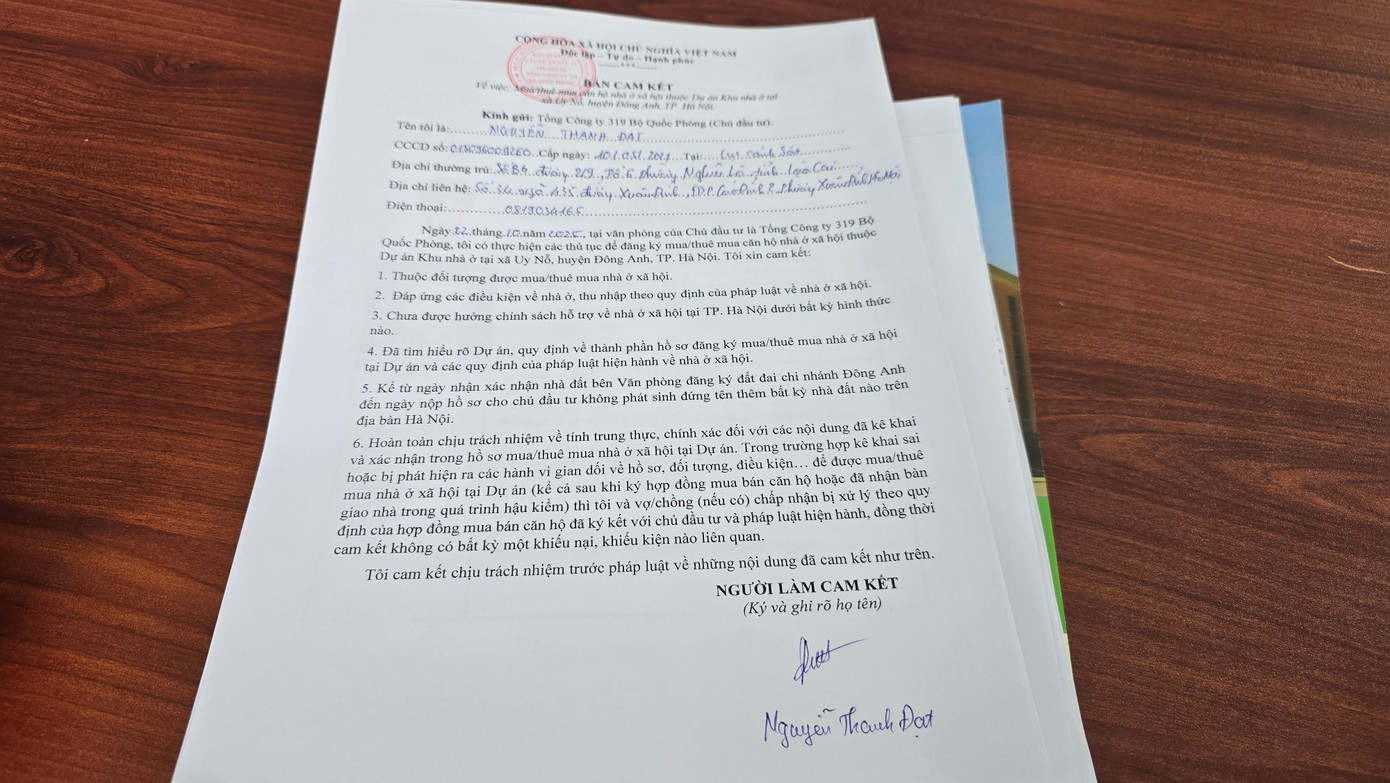 CỘNG HÒA XÃ HỘI CHỦ NGHĨA VIỆT NAM
Độc lập – Tự do – Hạnh phúc
BẢN CAM KẾT
Về việc: Mua/thuê mua căn hộ nhà ở xã hội thuộc Dự án Khu nhà ở tại
xã Uy Nỗ, huyện Đông Anh, TP. Hà Nội
Kính gửi: Tổng Công ty 319 Bộ Quốc Phòng (Chủ đầu tư)
Tên tôi là: NGUYỄN THANH ĐẠT
CCCD số: Cấp ngày: 10/05/2021 Tại: Cục Cảnh Sát
Địa chỉ thường trú: đường 219, Tổ 6, phường Nghĩa Lộ, tỉnh Lào Cai
Địa chỉ liên hệ: Số 34 ngõ 435 đường Xuân Đỉnh, Phường Xuân Đỉnh, Hà Nội
Điện thoại: 0819034165
Ngày 22 tháng 10 năm 2025, tại văn phòng của Chủ đầu tư là Tổng Công ty 319 Bộ
Quốc Phòng, tôi có thực hiện các thủ tục để đăng ký mua/thuê mua căn hộ nhà ở xã hội thuộc
Dự án Khu nhà ở tại xã Uy Nỗ, huyện Đông Anh, TP. Hà Nội. Tôi xin cam kết:
1. Thuộc đối tượng được mua/thuê mua nhà ở xã hội.
2. Đáp ứng các điều kiện về nhà ở, thu nhập theo quy định của pháp luật về nhà ở xã hội.
3. Chưa được hưởng chính sách hỗ trợ về nhà ở xã hội tại TP. Hà Nội dưới bất kỳ hình thức
nào.
4. Đã tìm hiểu rõ Dự án, quy định về thành phần hồ sơ đăng ký mua/thuê mua nhà ở xã hội
tại Dự án và các quy định của pháp luật hiện hành về nhà ở xã hội.
5. Kể từ ngày nhận xác nhận nhà đất bên Văn phòng đăng ký đất đai chi nhánh Đông Anh
đến ngày nộp hồ sơ cho chủ đầu tư không phát sinh đứng tên thêm bất kỳ nhà đất nào trên
địa bàn Hà Nội.
6. Hoàn toàn chịu trách nhiệm về tính trung thực, chính xác đối với các nội dung đã kê khai
và xác nhận trong hồ sơ mua/thuê mua nhà ở xã hội tại Dự án. Trong trường hợp kê khai sai
hoặc bị phát hiện ra các hành vi gian dối về hồ sơ, đối tượng, điều kiện… để được mua/thuê
mua nhà ở xã hội tại Dự án (kể cả sau khi ký hợp đồng mua bán căn hộ hoặc đã nhận bàn
giao nhà trong quá trình hậu kiểm) thì tôi và vợ/chồng (nếu có) chấp nhận bị xử lý theo quy
định của hợp đồng mua bán căn hộ đã ký kết với chủ đầu tư và pháp luật hiện hành, đồng thời
cam kết không có bất kỳ một khiếu nại, khiếu kiện nào liên quan.
Tôi cam kết chịu trách nhiệm trước pháp luật về những nội dung đã cam kết như trên.
NGƯỜI LÀM CAM KẾT
(Ký và ghi rõ họ tên)
Nguyễn Thanh Đạt